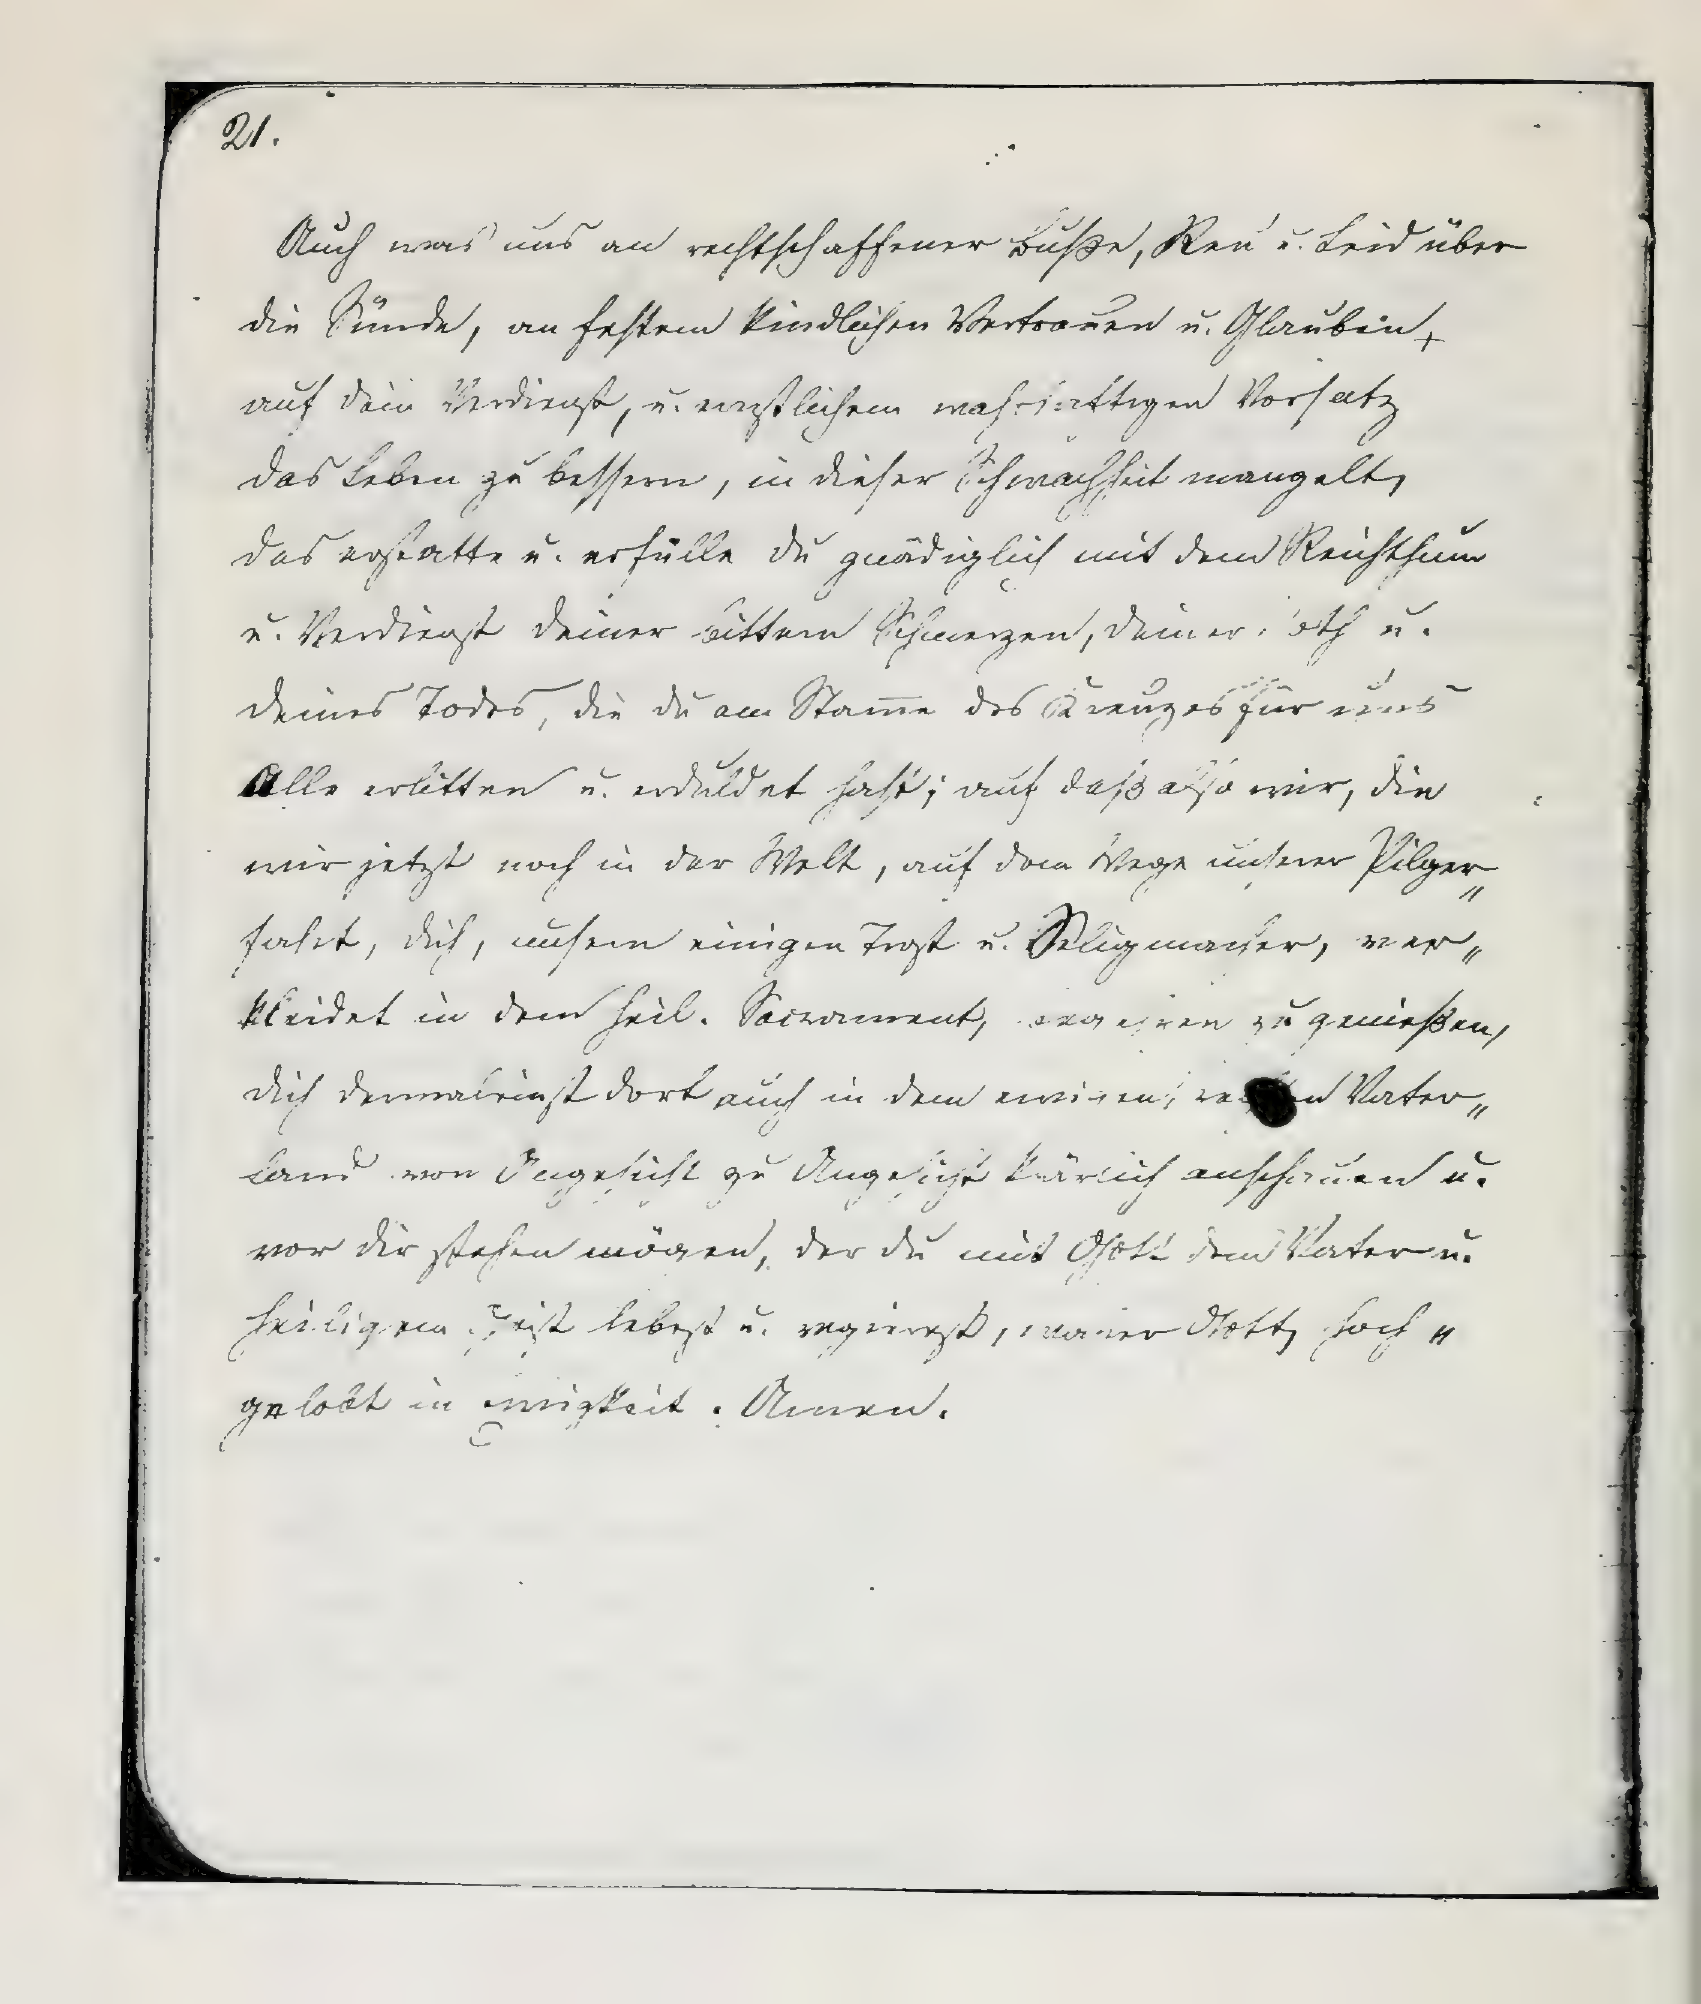 21.
Auch was uns an rechtschaffener Buße, Reu u. Leid über
die Sünde, an festem kindlichen Vertrauen u. Glauben,
auf dein Verdienst, u. ernstlichem wahrhaftigen Vorsatz
das Leben zu bessern, in dieser Schwachheit mangelt,
das erstatte u. erfülle du gnädiglich mit dem Reichthum
u. Verdienst deiner bittern Schmerzen, deiner u.
deines Todes, die du am Stam̄e des Kreuzes für uns
Alle erlitten u. erduldet hast; auf daß also wir, die
wir jetzt noch in der Welt, auf dem Wege unserer Pilger„
fahrt, dich, unsern einigen Trost u. Seligmacher, ver„
kleidet in dem heil. Sacrament, begehren zu genießen,
dich dermaleinst dort auch in dem ewigen, Vater„
land von Angesicht zu Angesicht klärlich anschauen u.
vor dir stehen mögen, der du mit Gott dem Vater u.
heiligem Geist lebest u. regierest, wahrer Gott, hoch„
gelobt in Ewigkeit. Amen.